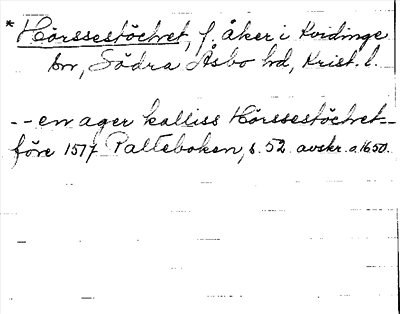 *Hörssestöchet, f. åker i Kvidinge
sn, Södra Åsbo hd, Krist. l.
-- en ager kalliss Hörssestöchet --
före 1517 Palteboken, s. 52. avskr. o. 1650.